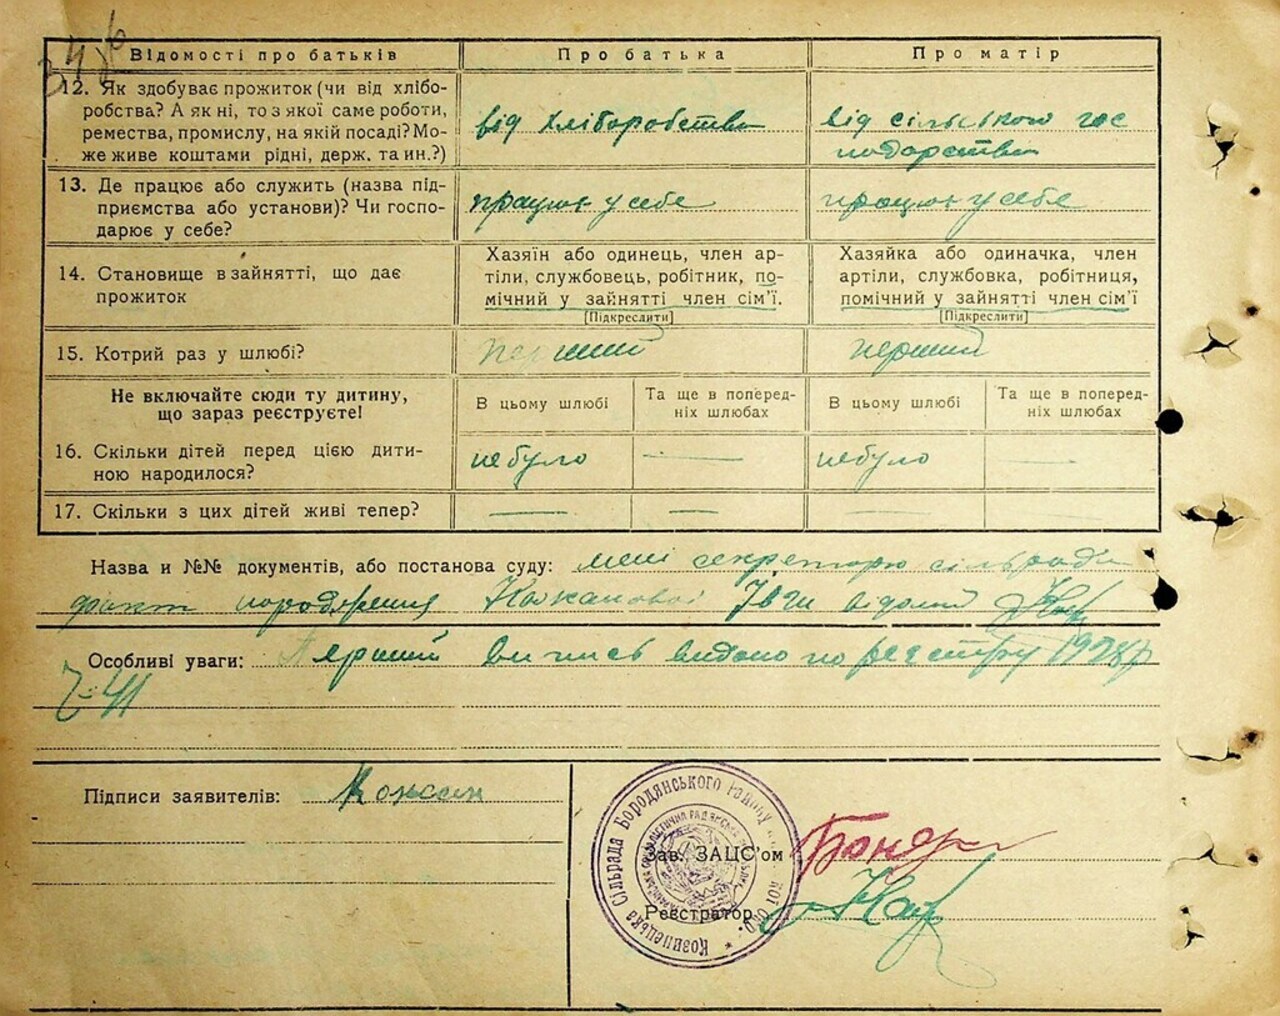 Відомості про батьків Про батька Про матір
12. Як здобуває прожиток (чи від хлібо-
робства? А як ні, то з якої саме роботи,
ремества, промислу, на якій посаді? Мо-
же живе коштами рідні, держ. та ин.?)
від хліборобства
від сільського гос
подарства
13. Де працює або служить (назва під-
приємства або установи)? Чи госпо-
дарює у себе?
працює у себе
працює у себе
14. Становище в зайнятті, що дає
прожиток
Хазяїн або одинець, член ар-
тіли, службовець, робітник, по-
мічний у зайнятті член сім'ї.
[Підкреслити]
Хазяйка або одиначка, член
артіли, службовка, робітниця,
помічний у зайнятті член сім'ї
[Підкреслити]
15. Котрий раз у шлюбі?
перший
перший
Не включайте сюди ту дитину,
що зараз реєструєте!
В цьому шлюбі
Та ще в поперед-
ніх шлюбах
В цьому шлюбі
Та ще в поперед-
ніх шлюбах
16. Скільки дітей перед цією дити-
ною народилося?
небуло
небуло
17. Скільки з цих дітей живі тепер?
Назва и №№ документів, або постанова суду: мені секретарю сільради
факт народження Кожанової Івги відомий
Особливі уваги: Перший випись видано по реєстру 1928 р
Підписи заявителів: Кожан
Козинецька Сільрада Бородянського району
Зав. ЗАЦС'ом
Реєстратор